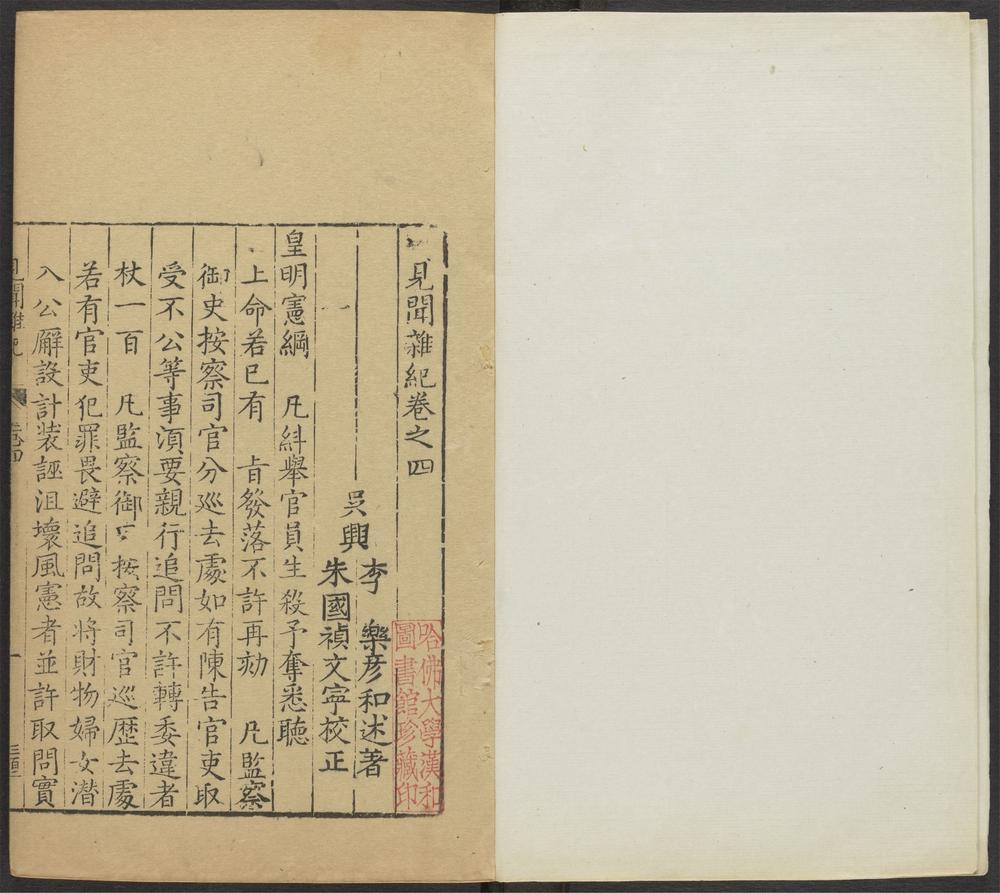 見聞雜紀卷之四
吳興
李樂彥和述著
朱國禎文寧校正
皇明憲綱　凡糾舉官員生殺予奪悉聽
上命若已有　旨發落不許再劾　凡監察
御史按察司官分巡去處如有陳告官吏取
受不公等事湏要親行追問不許轉委違者
杖一百　凡監察御史按察司官巡歷去處
若有官吏犯罪畏避追問故將財物婦女潛
入公廨設計装誣沮壞風憲者並許取問實
見聞雜紀
卷四
一
哈佛大學漢和
圖書館珍藏印